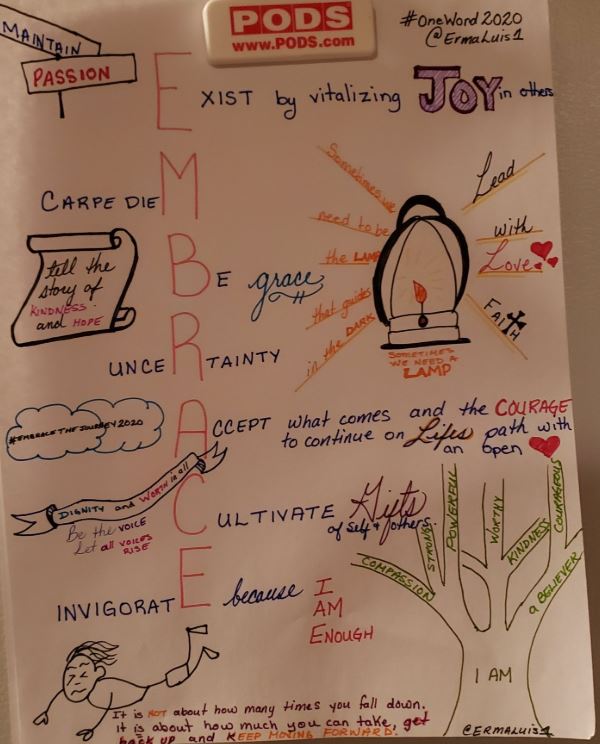 PODS
www.PODS.com
#OneWord2020
@ErmaLuis1
MAINTAIN
PASSION
EXIST by vitalizing JOY in others
CARPE DIEM
tell the
story of
KINDNESS
and HOPE
BE grace
Sometimes we
need to be
the LAMP
that guides
in the DARK
Lead
with
Love
FAITH
SOMETIMES
WE NEED A
LAMP
UNCERTAINTY
#EMBRACETHEJOURNEY2020
ACCEPT what comes and the COURAGE
to continue on Lifes path with
an open
DIGNITY and WORTH in all
Be the VOICE
Let all VOICES
RISE
CULTIVATE Gifts
of self & others.
INVIGORATE because I
AM
ENOUGH
COMPASSION
STRONG
POWERFUL
WORTHY
KINDNESS
COURAGEOUS
a BELIEVER
I AM
It is NOT about how many times you fall down.
It is about how much you can take, get
back up and KEEP MOVING FORWARD.
@ERMALUIS1